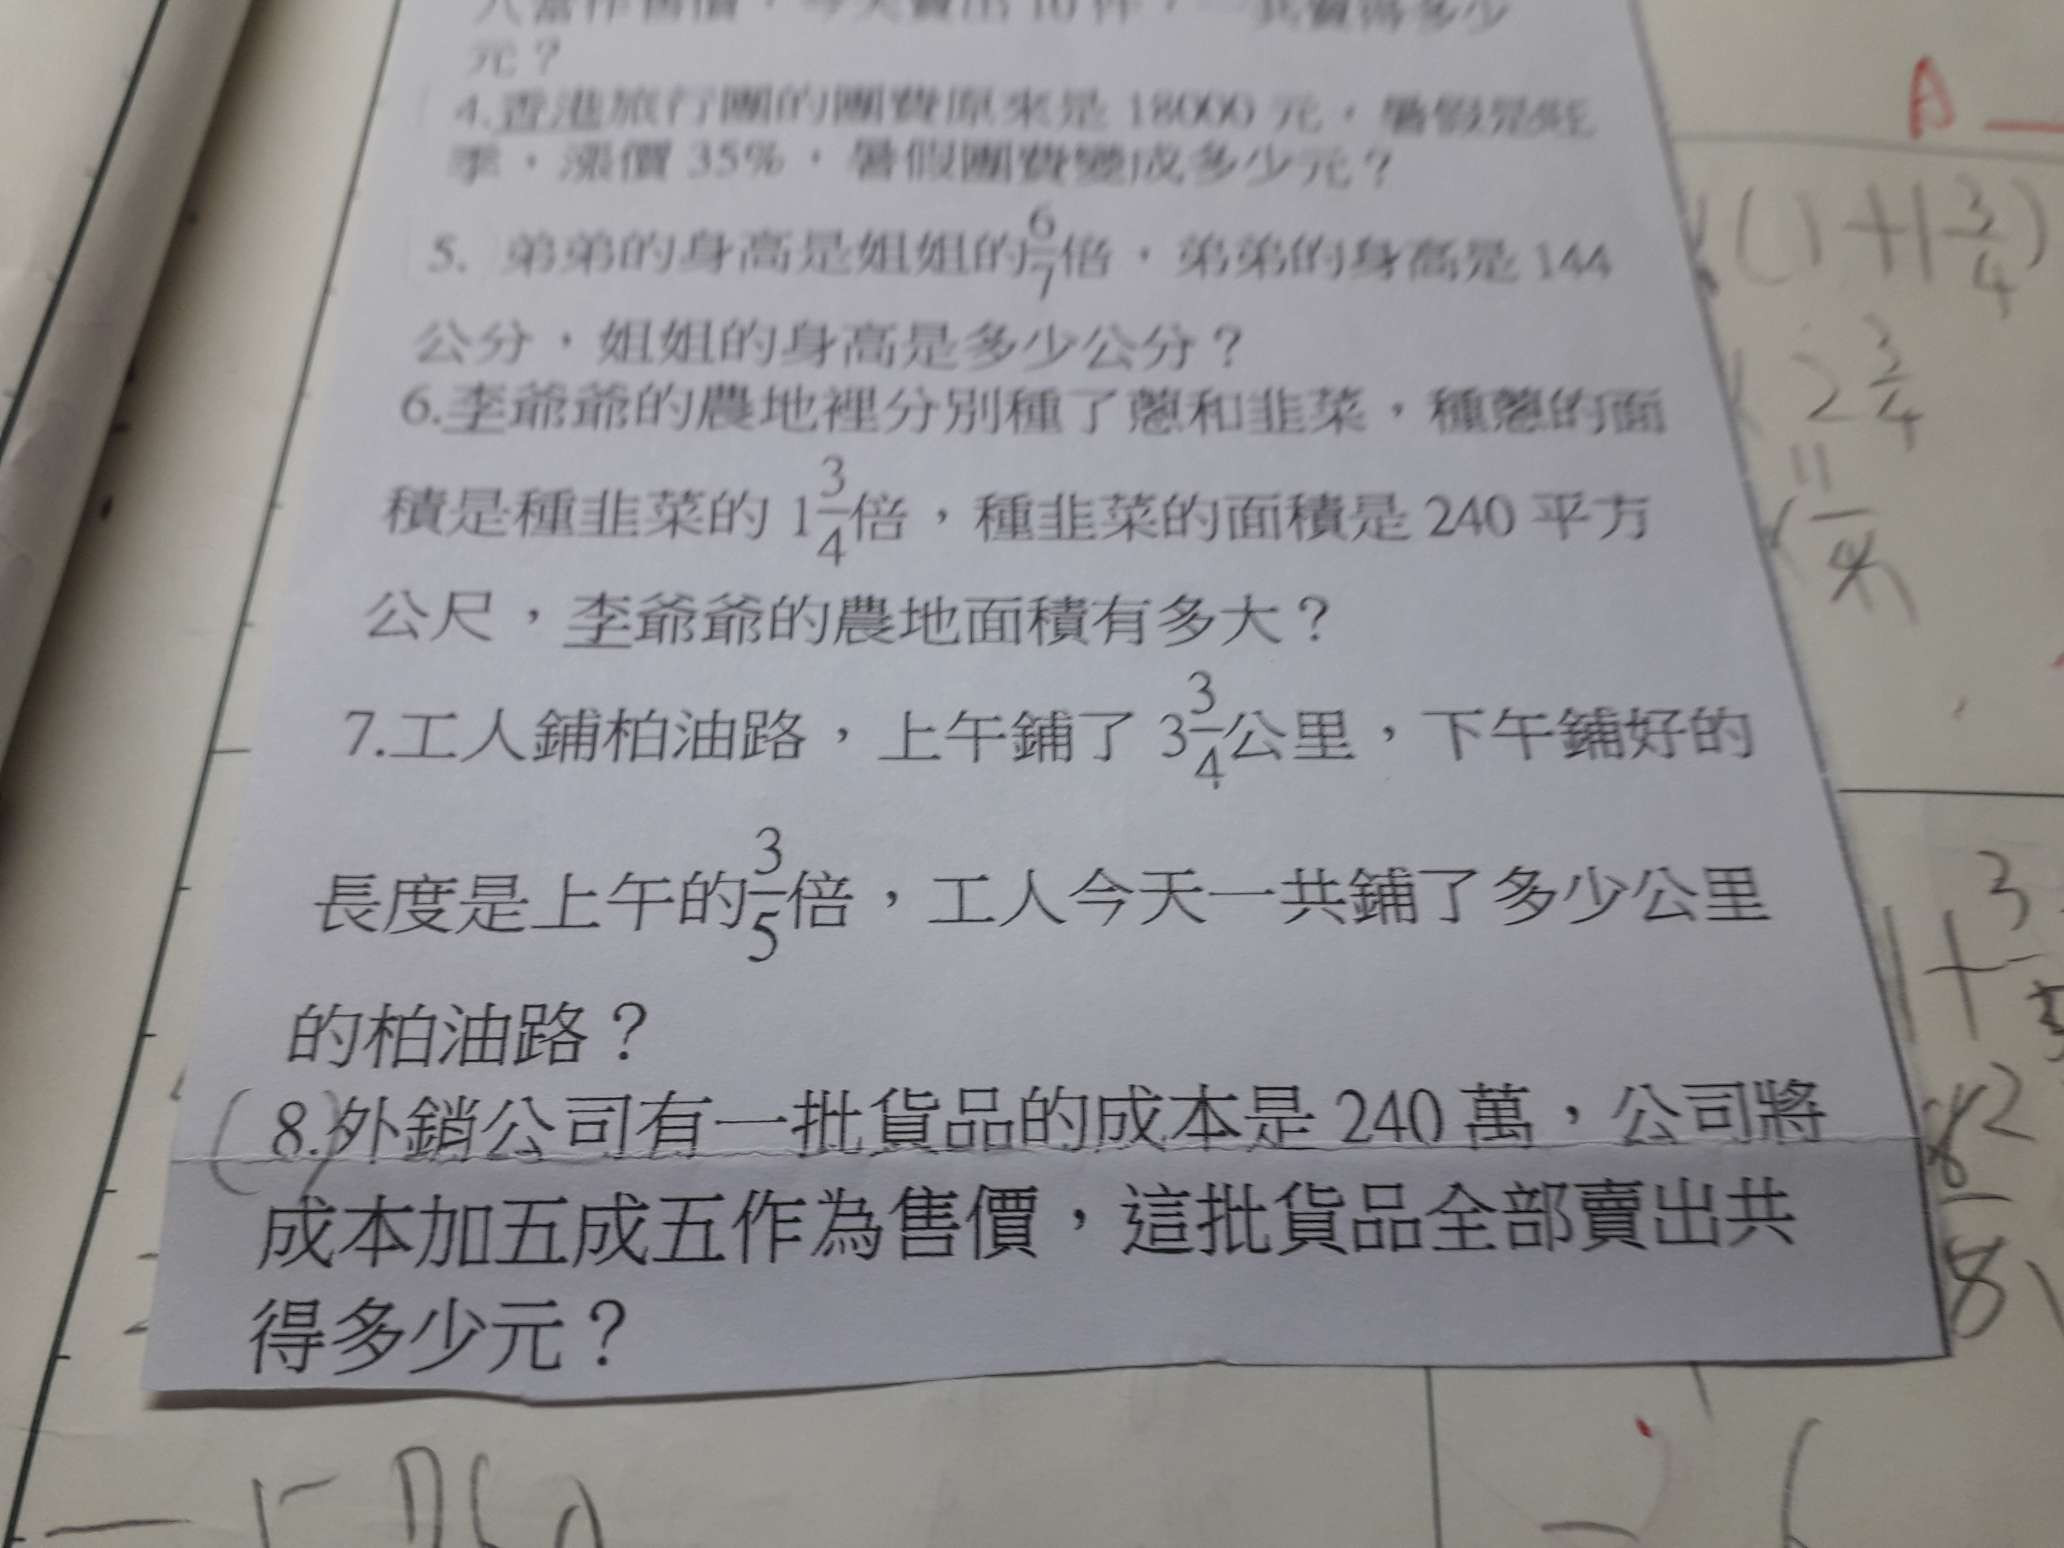 元？
4.香港旅行團的團費原來是 18000 元，暑假是旺
季，漲價 35%，暑假團費變成多少元？
5. 弟弟的身高是姐姐的6/7倍，弟弟的身高是 144
公分，姐姐的身高是多少公分？
6.李爺爺的農地裡分別種了蔥和韭菜，種蔥的面
積是種韭菜的 1 3/4倍，種韭菜的面積是 240 平方
公尺，李爺爺的農地面積有多大？
7.工人鋪柏油路，上午鋪了 3 3/4公里，下午鋪好的
長度是上午的3/5倍，工人今天一共鋪了多少公里
的柏油路？
(8.)外銷公司有一批貨品的成本是 240 萬，公司將
成本加五成五作為售價，這批貨品全部賣出共
得多少元？
A
(1+1 3/4)
2 3/4
11/4
1+3/5